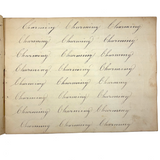 Charming Charming Charming
Charming Charming Charming
Charming Charming Charming
Charming Charming Charming
Charming Charming Charming
Charming Charming Charming
Charming Charming Charming
Charming Charming Charming